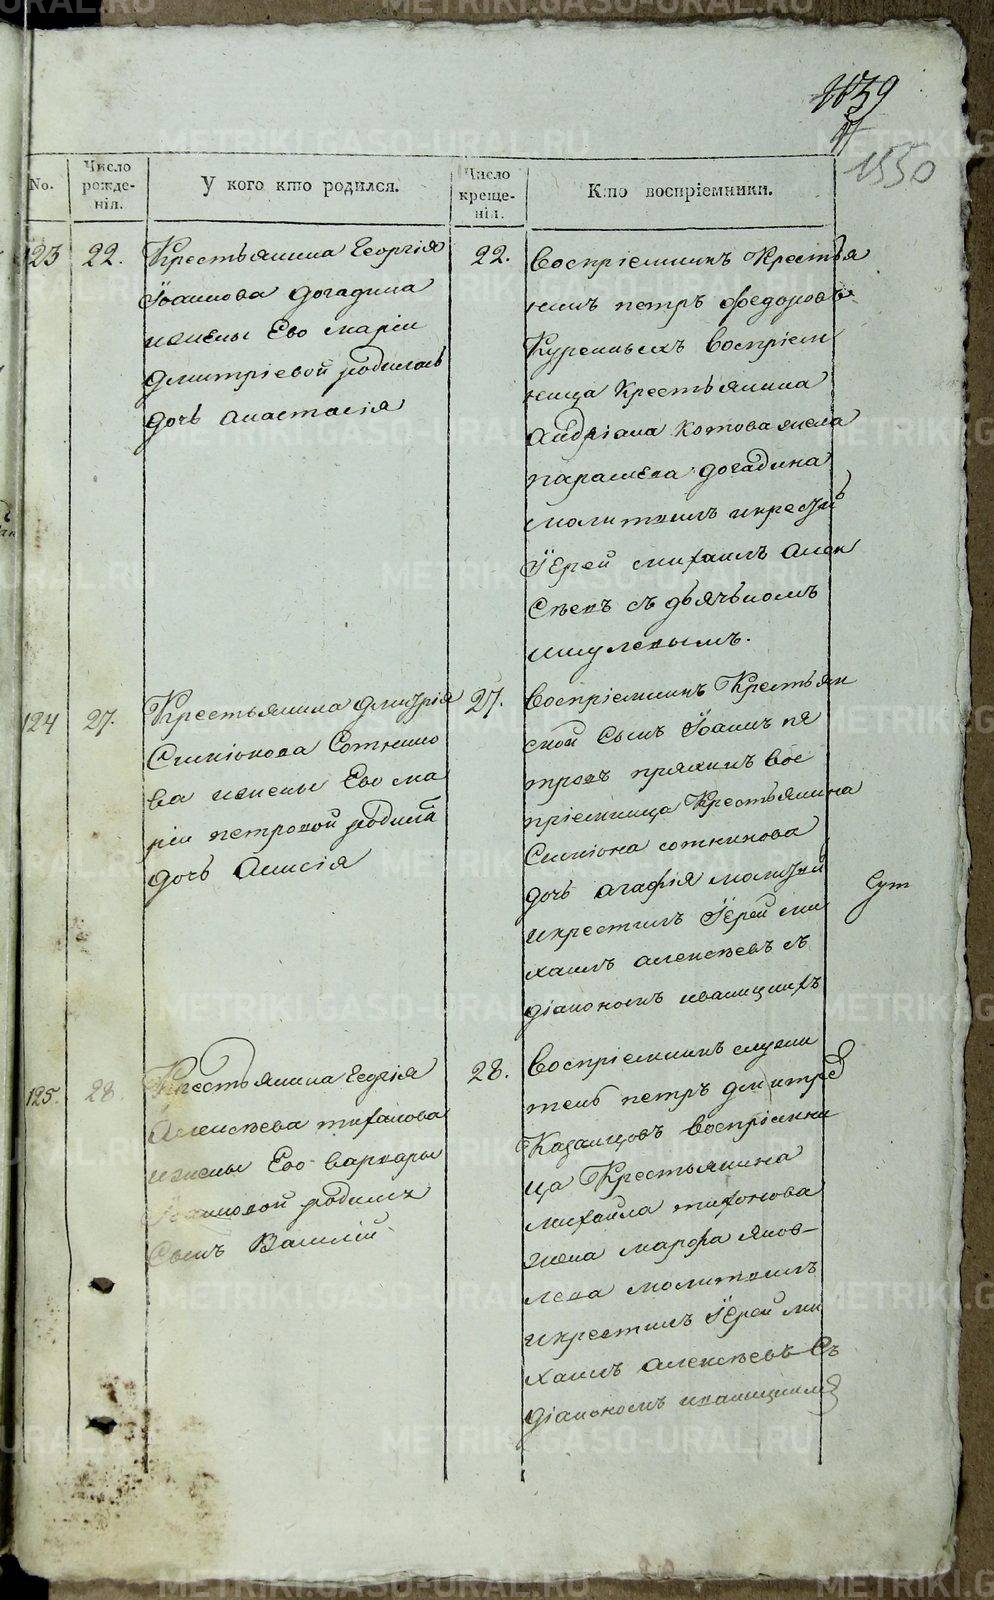 1550
No.
Число рожденія.
У кого кто родился.
Число крещенія.
Кто воспріемники.
123
22.
Крестьянина Георгія
Іоаннова Догадина
ижены Ево маріи
Дмитріевой родилась
дочь анастасія
22.
Воспріемникъ Крестья
нинъ петръ федоровъ
Воспріем
ница Крестьянина
андріана Котова жена
парашева догадина
молитвилъ икрестилъ
Іерей михаилъ алек
Сѣевъ съ дьячькомъ
124
27.
Крестьянина Дмитрія
Симіонова Сотнико
ва иженыы Ево ма
ріи петровой родила
дочь Анисія
27.
Воспріемникъ Крестьян
ской Сынъ Іоаннъ пе
тровъ пряхинъ Вос
пріемница Крестьянина
Симіона сотникова
дочь агафія молитвилъ
икрестилъ Іерей ми
хаилъ алексѣевъ съ
діакономъ
125.
28
Крестьянина Георгія
Алексѣева тихонова
иженыы Ево варвары
Іоанновой родилъ
Сынъ Василій
28.
Воспріемникъ служи
тель петръ дмитре
Казанцовъ Воспріемни
ца Крестьянина
михайла тихонова
жена марфа яков-
лева молитвилъ
икрестилъ Іерей ми
хаилъ алексѣевъ Съ
діакономъ
METRIKI.GASO-URAL.RU